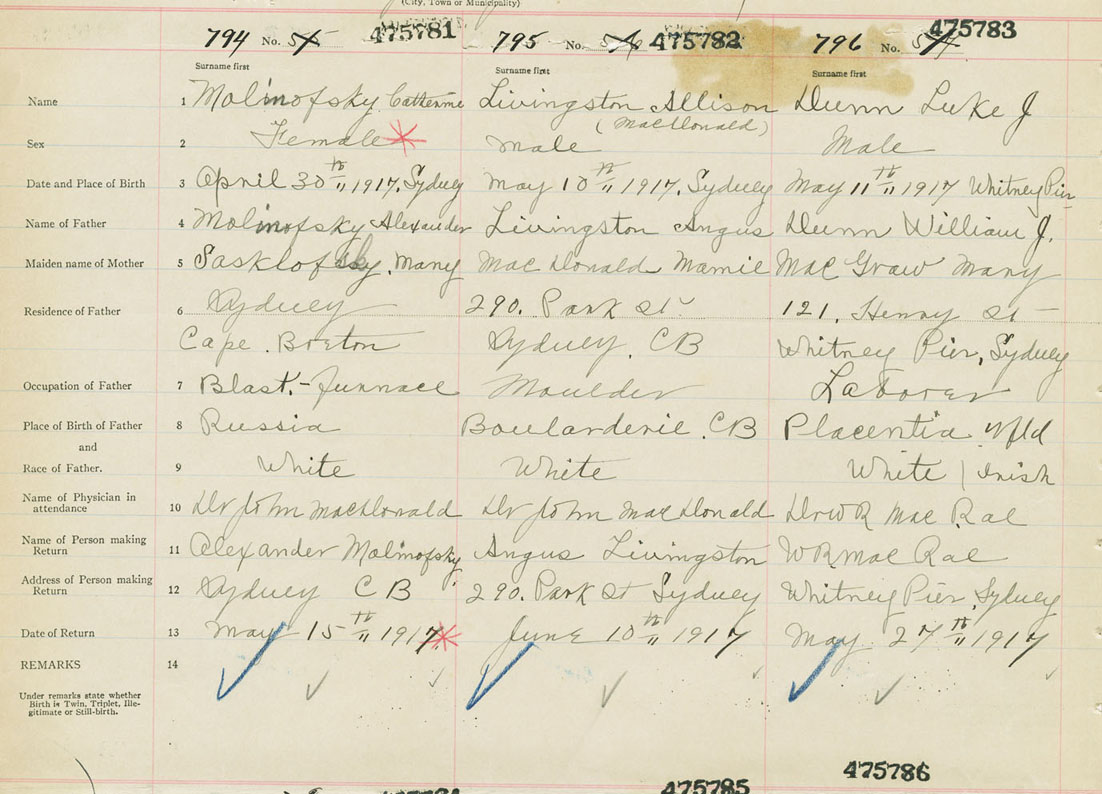 (City, Town or Municipality)
794 No. 475781 795 No. 475782 796 No. 475783
Surname first Surname first Surname first
Name 1 Molinofsky Catherine Livingston Allison Dunn Luke J
(MacDonald)
Sex 2 Female Male Male
Date and Place of Birth 3 April 30th " 1917, Sydney May 10th " 1917, Sydney May 11th " 1917 Whitney Pier
Name of Father 4 Molinofsky Alexander Livingston Angus Dunn William J.
Maiden name of Mother 5 Mary MacDonald Mamie MacGraw Mary
Residence of Father 6 Sydney 290. Park St 121. Henry St
Cape Breton Sydney. CB Whitney Pier, Sydney
Occupation of Father 7 Blast-furnace Moulder Laborer
Place of Birth of Father 8 Russia Boularderie. CB Placentia Nfld
and
Race of Father. 9 White White White | Irish
Name of Physician in
attendance 10 Dr John MacDonald Dr John MacDonald Dr W R MacRae
Name of Person making
Return 11 Alexander Molinofsky Angus Livingston W R MacRae
Address of Person making
Return 12 Sydney CB 290. Park St Sydney Whitney Pier, Sydney
Date of Return 13 May 15th " 1917 June 10th " 1917 May 27th " 1917
REMARKS 14
Under remarks state whether
Birth is Twin, Triplet, Ille-
gitimate or Still-birth.
475785 475786